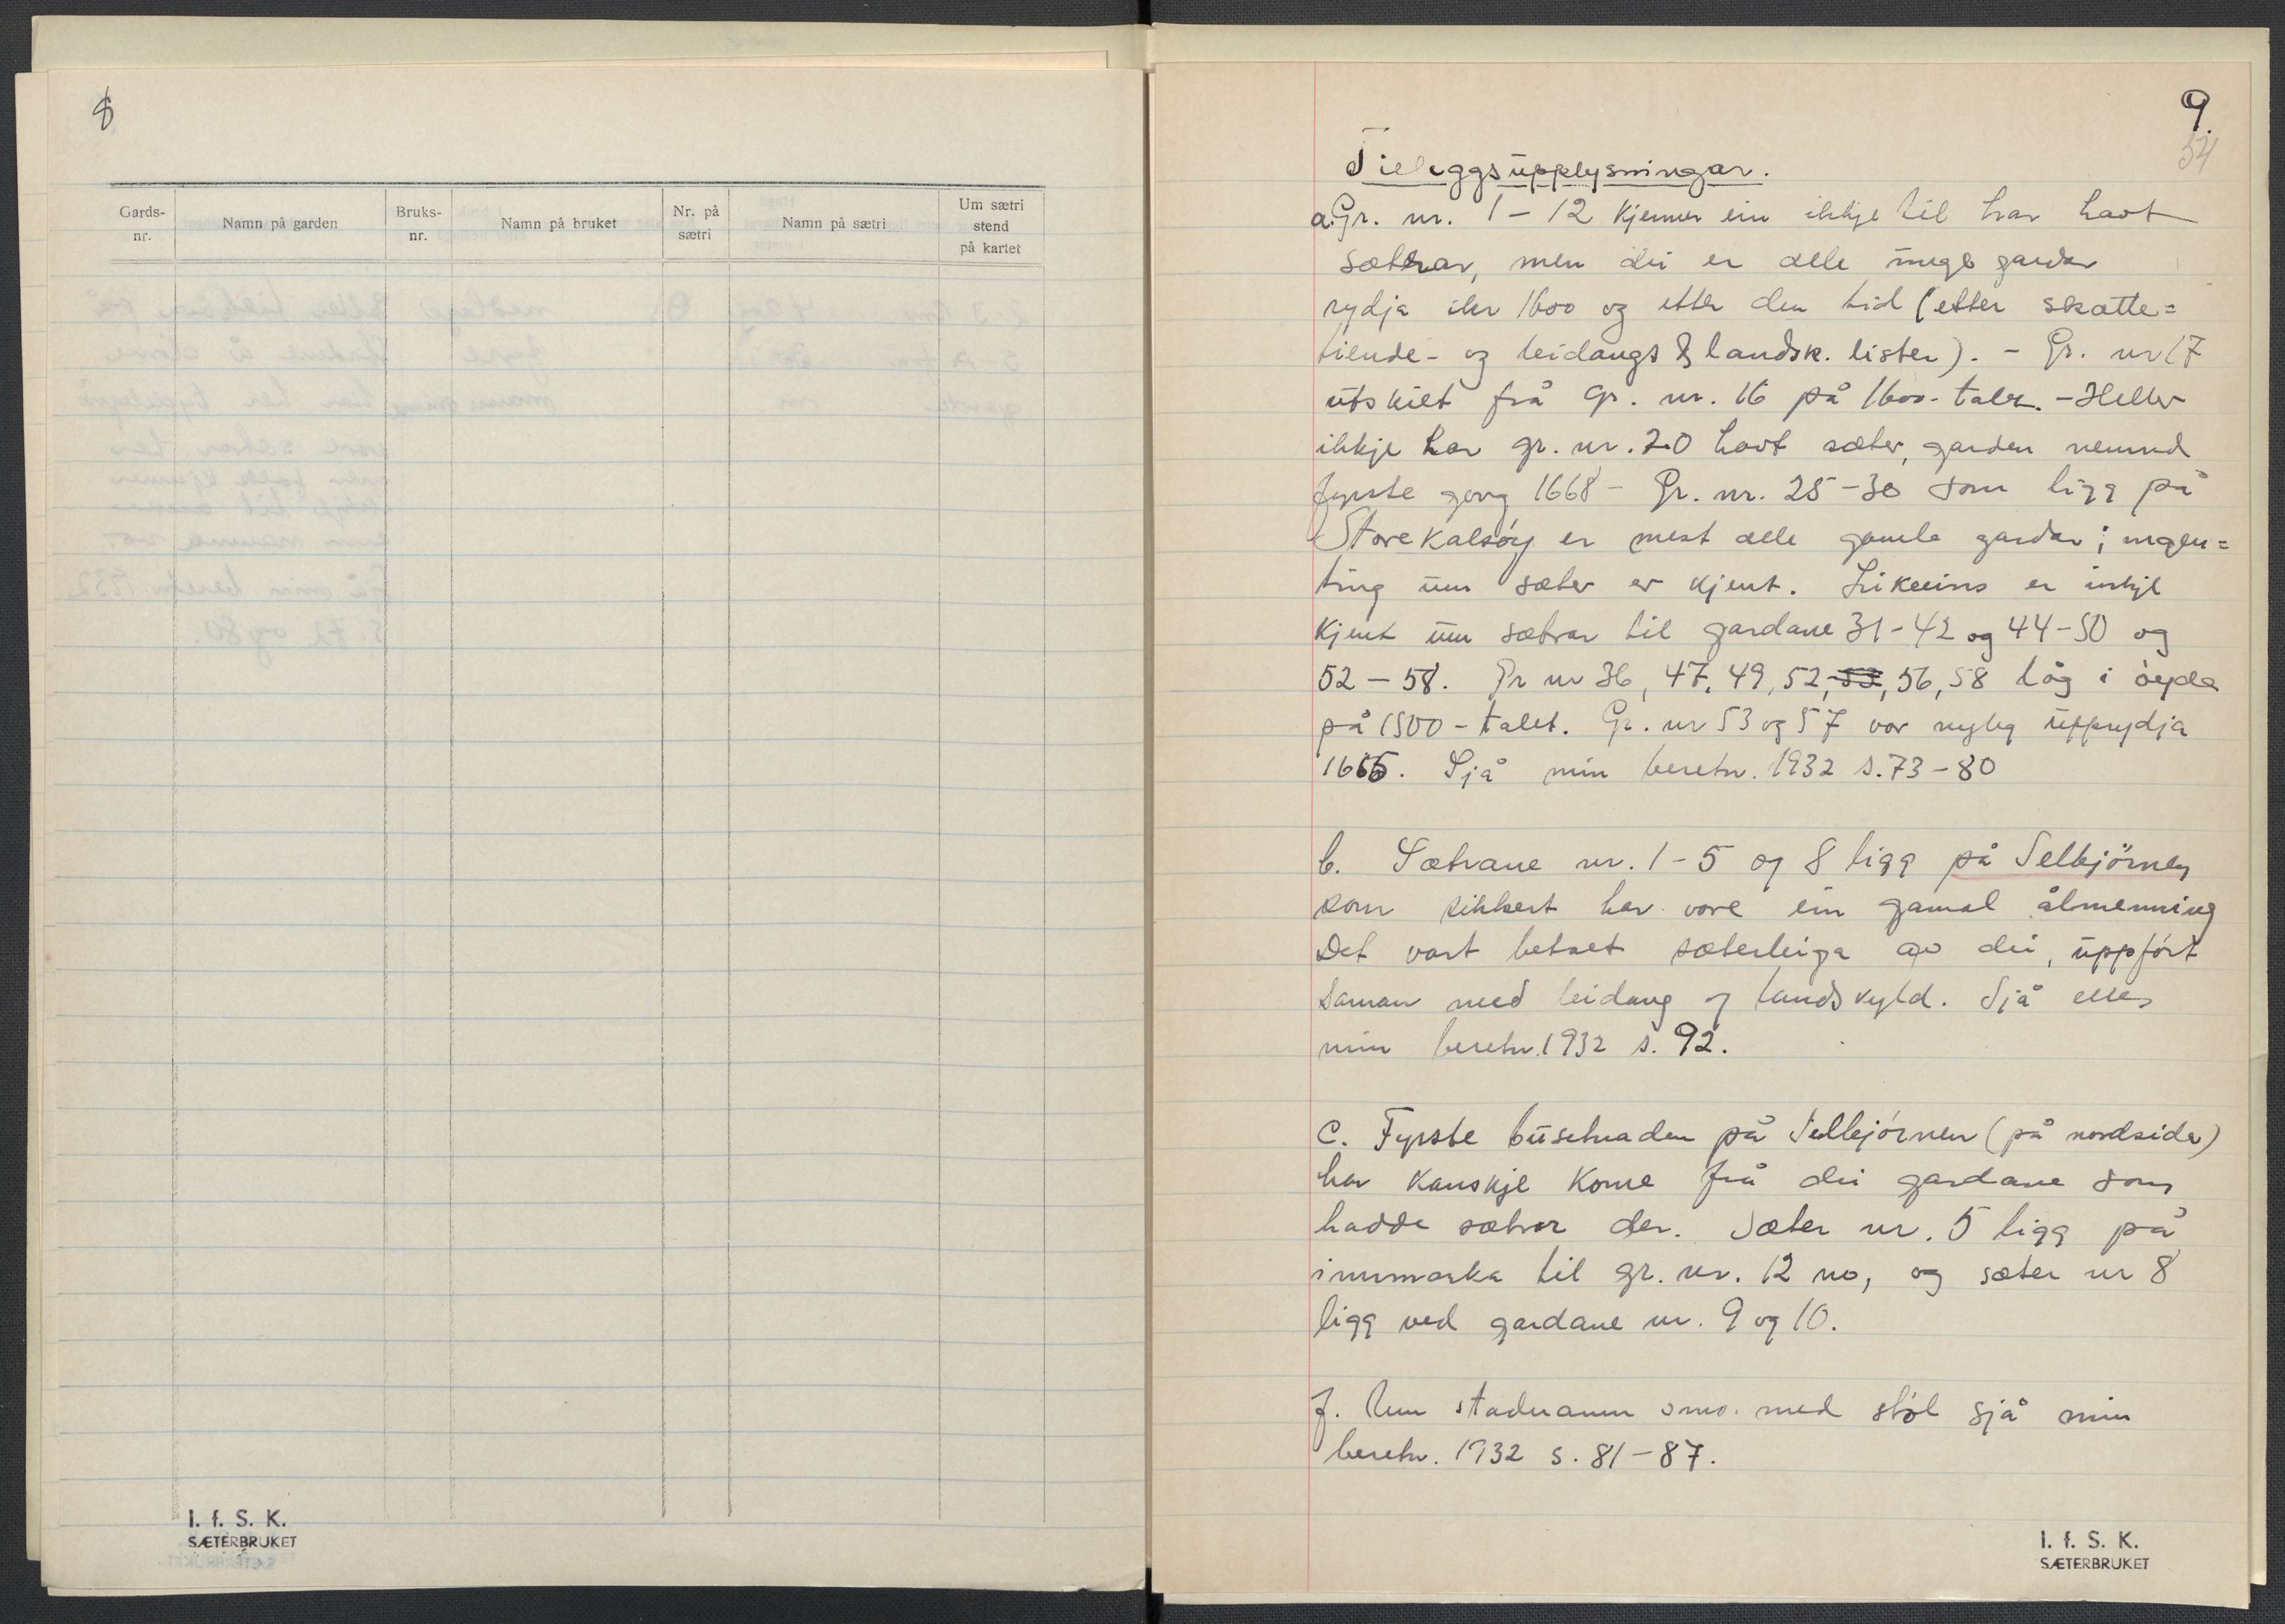 8
Gards-
nr.
Namn på garden
Bruks-
nr.
Namn på bruket
Nr. på
sætri
Namn på sætri
Um sætri
stend
på kartet
I. f. S. K.
SÆTERBRUKET
9.
54
Tilleggsupplysningar.
a. Gr. nr. 1-12 kjenner ein ikkje til har havt
sætrar, men dei er alle unge gardar
rydja ikr 1600 og etter den tid (etter skatte=
tiende- og leidangs & landsk. lister). - Gr. nr 17
utskilt frå gr. nr. 16 på 1600-talet. - Heller
ikkje har gr. nr. 20 havt sæter, garden nemnd
fyrste gong 1668 - Gr. nr. 25-30 som ligg på
Storekalsöy er mest alle gamle gardar; ingen=
ting um sæter er kjent. Likeeins er inkje
kjent um sætrar til gardane 31-42 og 44-50 og
52-58. Gr nr 36, 47, 49, 52, 53, 56, 58 låg i øyde
på 1500-talet. Gr. nr 53 og 57 var nyleg upprydja
1665. Sjå min beretn. 1932 s. 73-80
b. Sætrane nr. 1-5 og 8 ligg på Selbjörnen
som sikkert har vore ein gamal ålmenning
Det vart betalt sæterleiga av dei, uppført
saman med leidang og landskyld. Sjå elles
min beretn. 1932 s. 92.
c. Fyrste busetnaden på Selbjörnen (på nordsida)
har kanskje kome frå dei gardane som
hadde sætrar der. Sæter nr. 5 ligg på
innmarka til gr. nr. 12 no, og sæter nr 8
ligg ved gardane nr. 9 og 10.
f. Um stadnamn smo. med støl sjå min
beretn. 1932 s. 81-87.
I. f. S. K.
SÆTERBRUKET